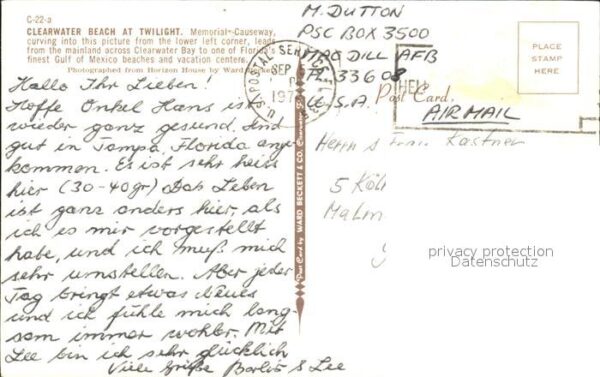 C-22-a
CLEARWATER BEACH AT TWILIGHT. Memorial Causeway,
curving into this picture from the lower left corner, leads
from the mainland across Clearwater Bay to one of Florida's
finest Gulf of Mexico beaches and vacation centers.
Photographed from Horizon House by Ward
Hallo Ihr Lieben!
Hoffe Onkel Hans ist
wieder ganz gesund. Sind
gut in Tampa, Florida ange
kommen. Es ist sehr heiss
hier (30-40gr) Das Leben
ist ganz anders hier, als
ich es mir vorgestellt
habe, und ich muß mich
sehr umstellen. Aber jeder
Tag bringt etwas Neues
und ich fühle mich lang-
sam immer wohler. Mit
Lee bin ich sehr glücklich
Viele Grüße & Lee
Post Card by WARD BECKETT & CO. Clearwater
U.S. POSTAL SERVICE
SEP
197
M. DUTTON
PSC BOX 3500
MAC DILL AFB
FL 33608
U.S.A.
Post Card
PLACE
STAMP
HERE
AIRMAIL
Herrn & Frau Kästner
5 Köl
privacy protection
Datenschutz